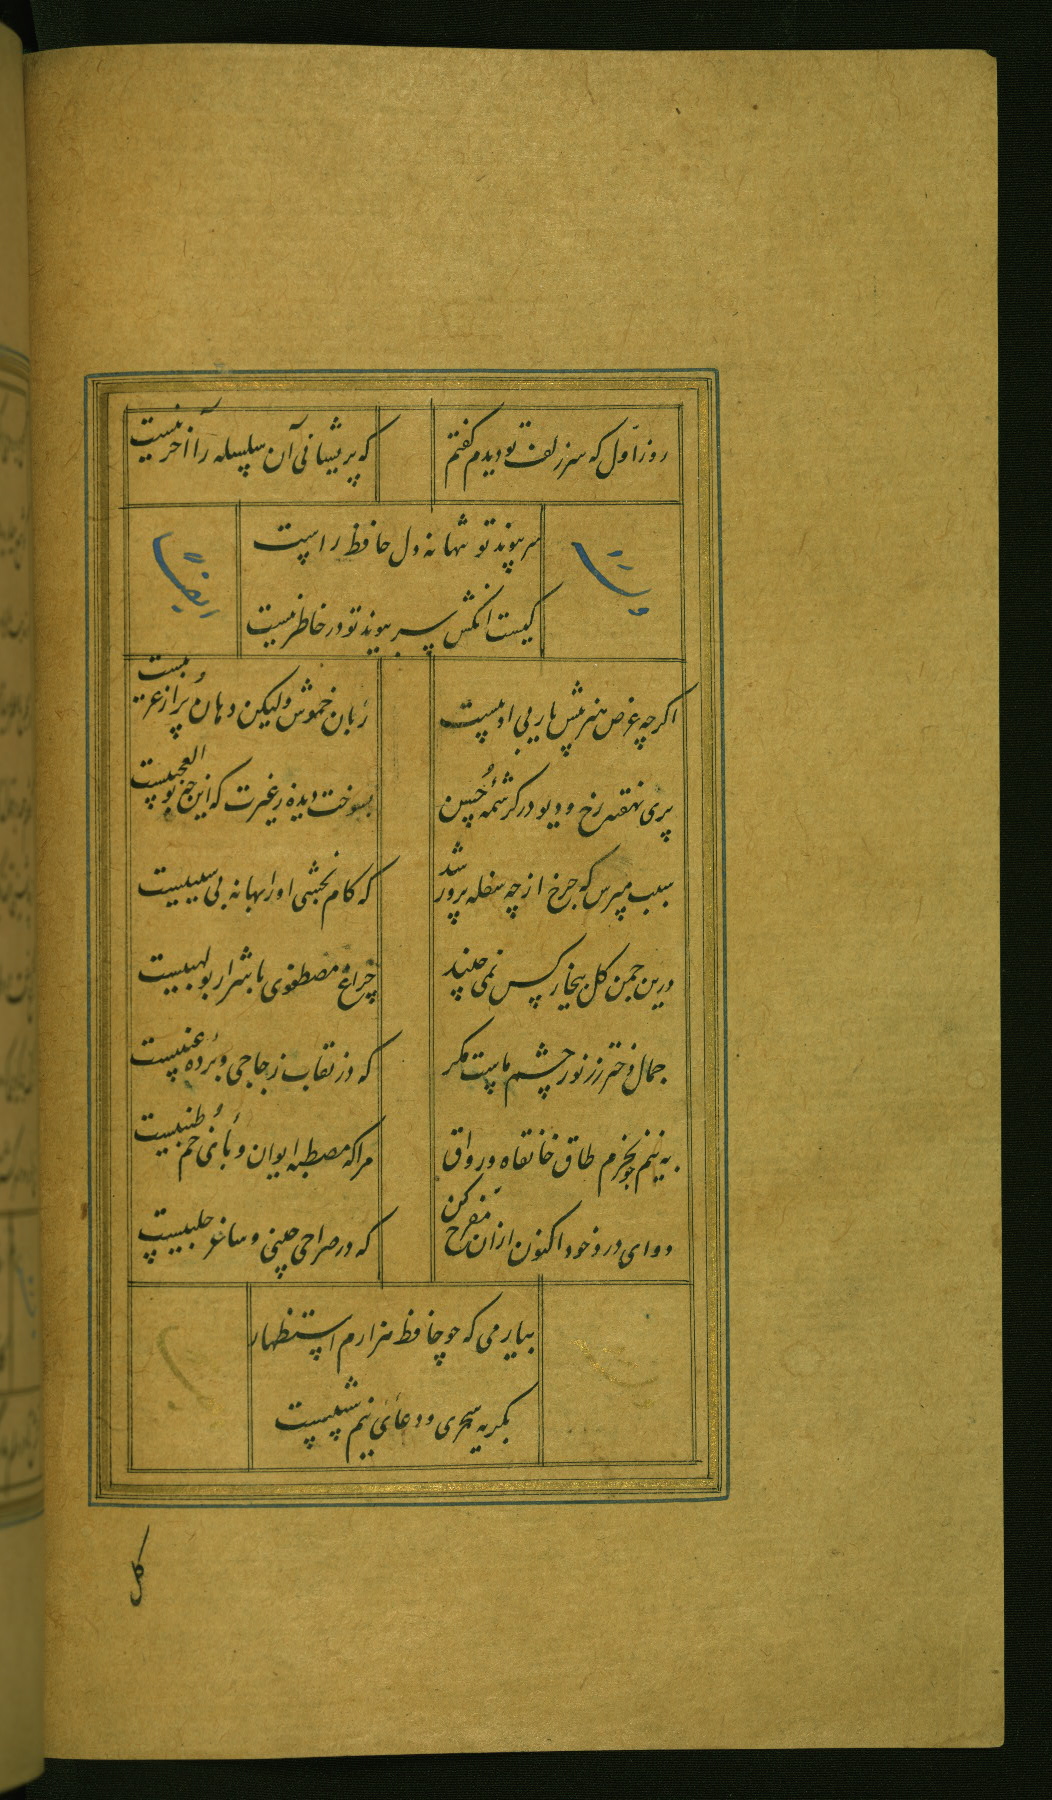 روز اول که سر زلف تو دیدم گفتم
که پریشانی آن سلسله را آخر نیست
سر پیوند تو تنها نه دل حافظ راست
کیست انکش سر پیوند تو در خاطر نیست
وله
ایضا
اکرچه عرض هنر پیش یار بی ادبیست
زبان خموش ولیکن دهان پر از عربیست
پری نهفته رخ و دیو در کرشمه حسن
بسوخت دیده ز غیرت که این چه بوالعجبیست
سبب مپرس که چرخ از چه سفله پرور شد
که کام بخشی او را بهانه بی سببیست
درین چمن کل بیخار کس نمی چیند
چراغ مصطفوی با شرار بولهبیست
جمال دختر رز نور چشم ماست مکر
که در نقاب زجاجی و پرده عنبیست
به نیم جو نخرم طاق خانقاه و رواق
مرا که مصطبه ایوان و پای خم طنبیست
دوای درد خود اکنون ازان مفرح کن
که در صراحی چینی و ساغر حلبیست
بیار می که چو حافظ هزارم استظهار
بکریه سحری و دعای نیم شبیست
کل